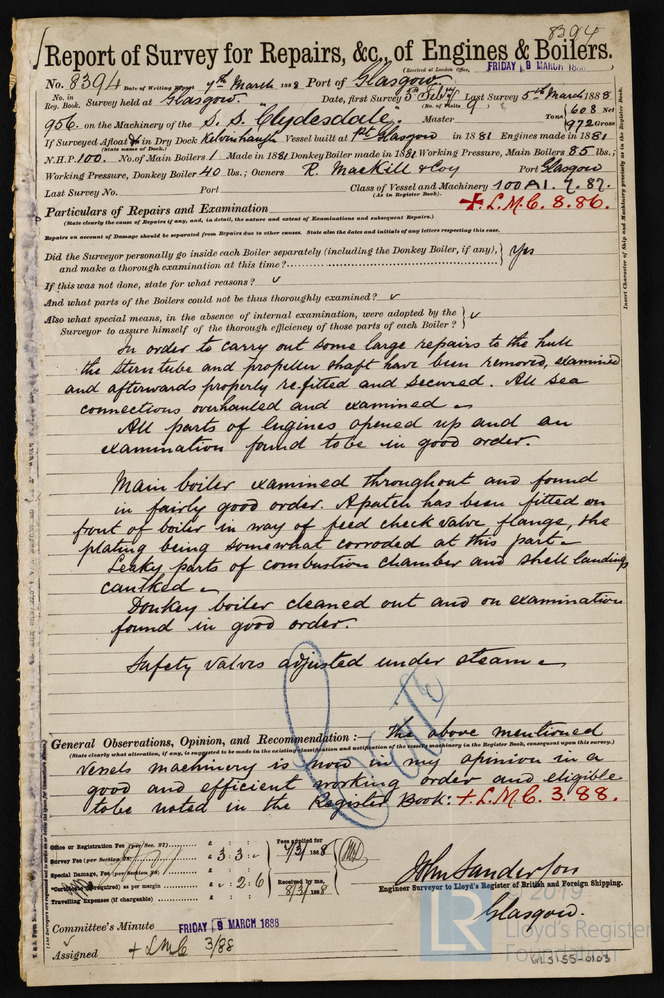 8394
Report of Survey for Repairs, &c., of Engines & Boilers.
(Received at London Office, FRIDAY 9 MARCH 1888
No. 8394 Date of Writing Report 7th March 1888 Port of Glasgow
No. in Reg. Book. Survey held at Glasgow Date, first Survey 5th Feby Last Survey 5th March 1888
(No. of Visits 9)
956. on the Machinery of the S.S. "Clydesdale." Master Tons 608 Net 972 Gross
If Surveyed Afloat or in Dry Dock Kelvinhaugh Vessel built at Pt Glasgow in 1881 Engines made in 1881
(State name of Dock.)
N.H.P. 100. No. of Main Boilers 1 Made in 1881 Donkey Boiler made in 1881 Working Pressure, Main Boilers 85 lbs;
Working Pressure, Donkey Boiler 40 lbs.; Owners R. MacKill & Coy Port Glasgow
Last Survey No. Port Class of Vessel and Machinery 100A1. 7. 87.
(As in Register Book).
+ L.M.C. 8.86.
Particulars of Repairs and Examination
(State clearly the cause of Repairs if any, and, in detail, the nature and extent of Examinations and subsequent Repairs.)
Repairs on account of Damage should be separated from Repairs due to other causes. State also the dates and initials of any letters respecting this case.
Did the Surveyor personally go inside each Boiler separately (including the Donkey Boiler, if any), and make a thorough examination at this time? Yes
If this was not done, state for what reasons? ✓
And what parts of the Boilers could not be thus thoroughly examined? ✓
Also what special means, in the absence of internal examination, were adopted by the Surveyor to assure himself of the thorough efficiency of those parts of each Boiler? ✓
In order to carry out some large repairs to the hull
the stern tube and propeller shaft have been removed, examined
and afterwards properly refitted and secured. All sea
connections overhauled and examined
All parts of Engines opened up and on
examination found to be in good order.
Main boiler examined throughout and found
in fairly good order. A patch has been fitted on
front of boiler in way of feed check valve, flange, the
plating being somewhat corroded at this part
Leaky parts of combustion chamber and shell landings
caulked
Donkey boiler cleaned out and on examination
found in good order.
Safety valves adjusted under steam
General Observations, Opinion, and Recommendation:— The above mentioned
(State clearly what alteration, if any, is suggested to be made in the existing classification and notification of the vessel's machinery in the Register Book, consequent upon this survey.)
vessels machinery is now in my opinion in a
good and efficient working order and eligible
to be noted in the Register Book: + L.M.C. 3.88.
Office or Registration Fee (per Sec. 27)
Survey Fee (per Section 28) £ 3: 3:
Special Damage, Fee (per Section 28)
*Certificate (if required) as per margin : 2: 6
Travelling Expenses (if chargeable)
Fees applied for 7/3/1888
Received by me, 8/3/1888
John Sanderson
Engineer Surveyor to Lloyd's Register of British and Foreign Shipping.
Glasgow.
Committee's Minute FRIDAY 9 MARCH 1888
Assigned + LMC 3/88
Insert Character of Ship and Machinery precisely as in the Register Book.
LR
© 2019
Lloyd's Register
Foundation
GLS155-0103